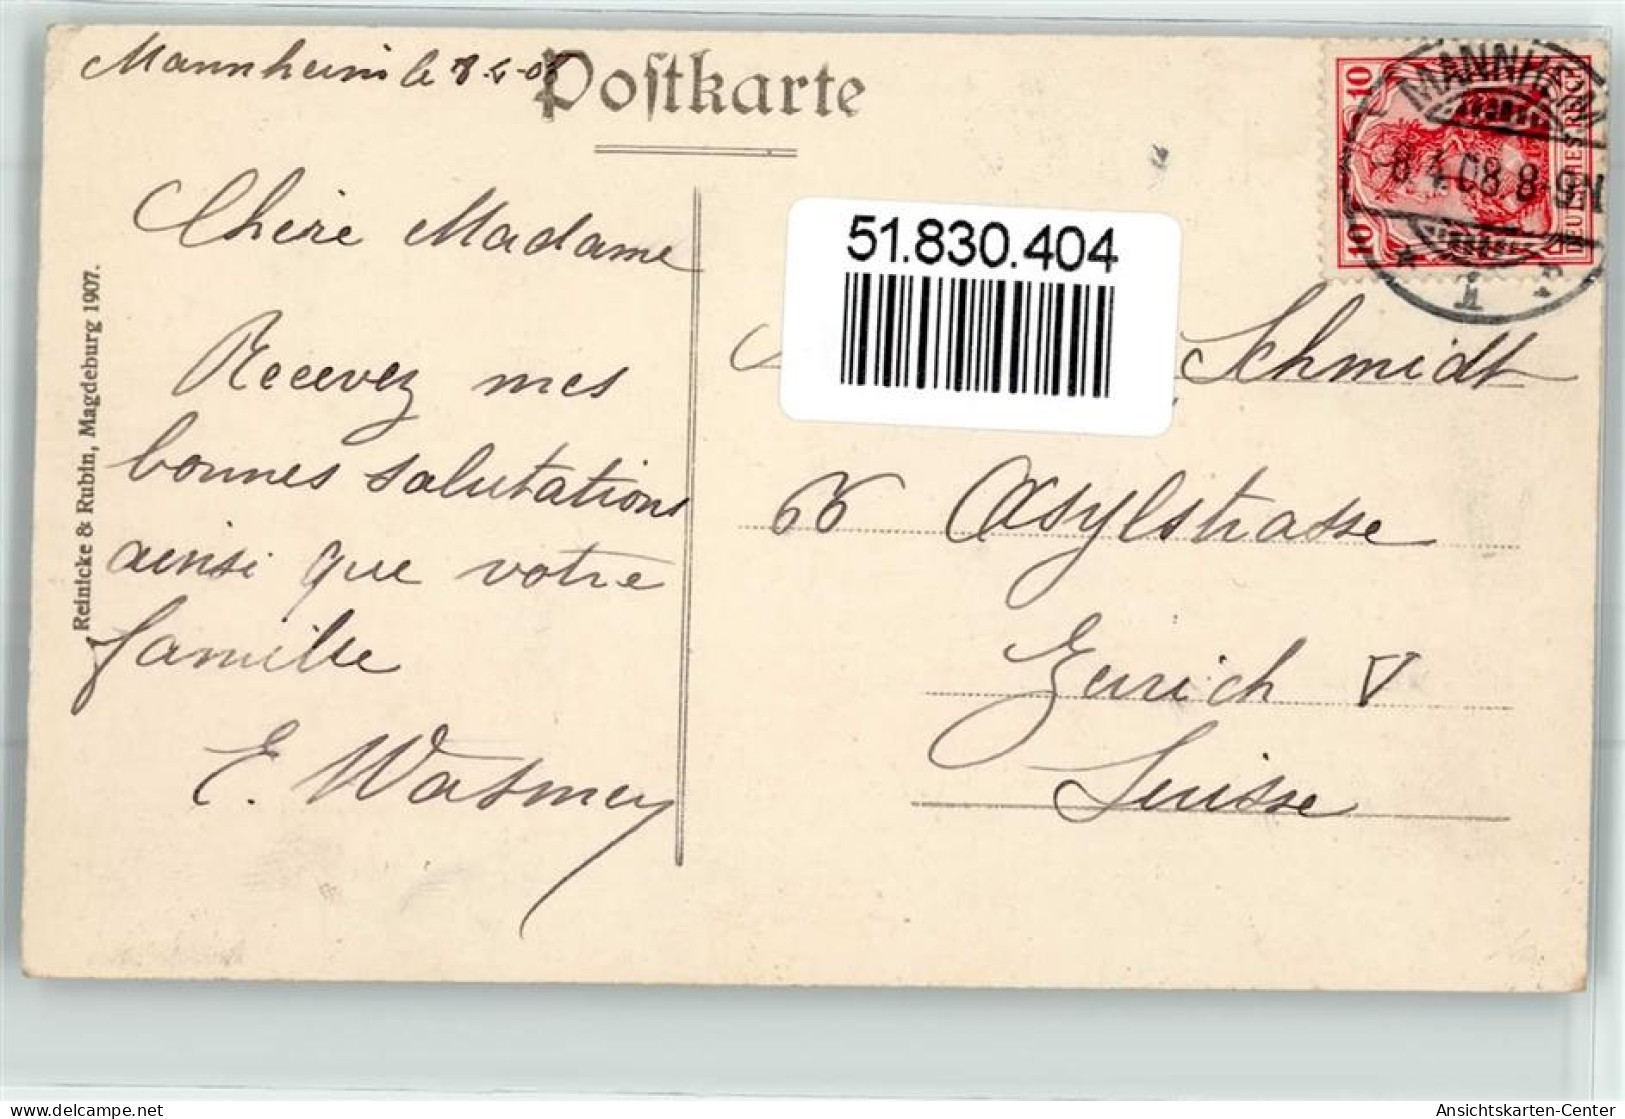 Mannheim le 8.4.08
Postkarte
Chère Madame
Recevez mes
bonnes salutations
ainsi que votre
famille
E. Wasmey
Reinicke & Rubin, Magdeburg 1907.
51.830.404
MANNHEIM
8.4.08 8-9N
1
10
10
DEUTSCHES REICH
Schmidt
66 Asylstrasse
Zurich V
Suisse
oldthing.de
Ansichtskarten-Center